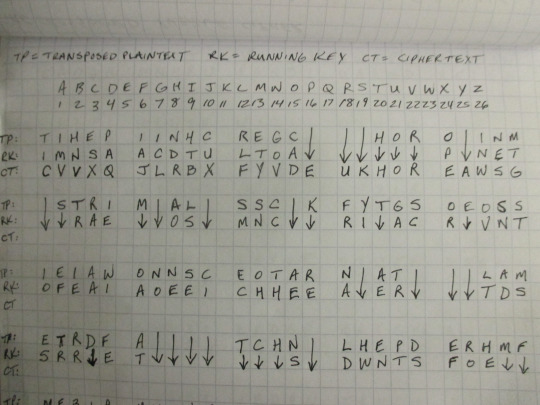 TP = TRANSPOSED PLAINTEXT RK = RUNNING KEY CT = CIPHERTEXT
A B C D E F G H I J K L M N O P Q R S T U V W X Y Z
1 2 3 4 5 6 7 8 9 10 11 12 13 14 15 16 17 18 19 20 21 22 23 24 25 26
TP: T I H E P I I N H C R E G C ↓ ↓ ↓ H O R O ↓ I N M
RK: I M N S A A C D T U L T O A ↓ ↓ ↓ ↓ ↓ ↓ P ↓ N E T
CT: C V V X Q J L R B X F Y V D E U K H O R E A W S G
TP: ↓ S T R I M ↓ A L ↓ S S C ↓ K F Y T G S O E O S S
RK: ↓ ↓ R A E ↓ ↓ O S ↓ M N C ↓ ↓ R I ↓ A C R ↓ V N T
CT:
TP: I E I A W O N N S C E O T A R N ↓ A T ↓ ↓ ↓ L A M
RK: O F E A I A O E E I C H H E E A ↓ E R ↓ ↓ ↓ T D S
CT
TP: E T R D F A ↓ ↓ ↓ ↓ T C H N ↓ L H E P D E R H M F
RK: S R R ↓ E T ↓ ↓ ↓ ↓ ↓ ↓ ↓ S ↓ D W N T S F O E ↓ ↓
CT: